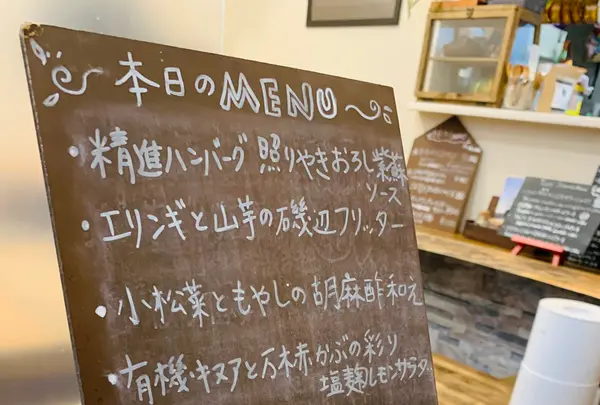 本日のMENU
・精進ハンバーグ 照りやきおろし紫蘇
ソース
・エリンギと山芋の磯辺フリッター
・小松菜ともやしの胡麻酢和え
・有機・キヌアと万木赤かぶの彩り
塩麹レモンサラダ